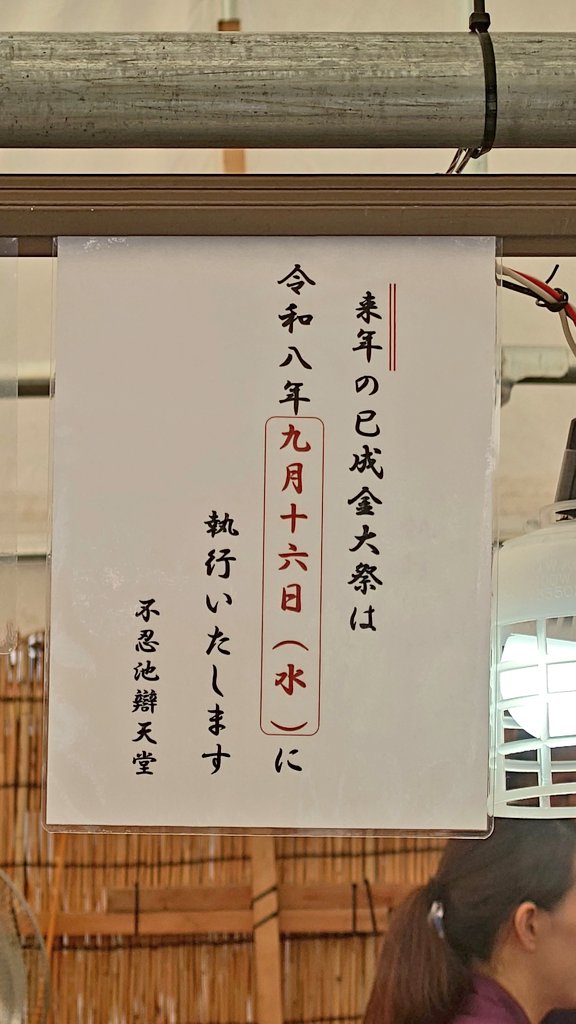 来年の巳成金大祭は
令和八年九月十六日（水）に
執行いたします
不忍池辯天堂